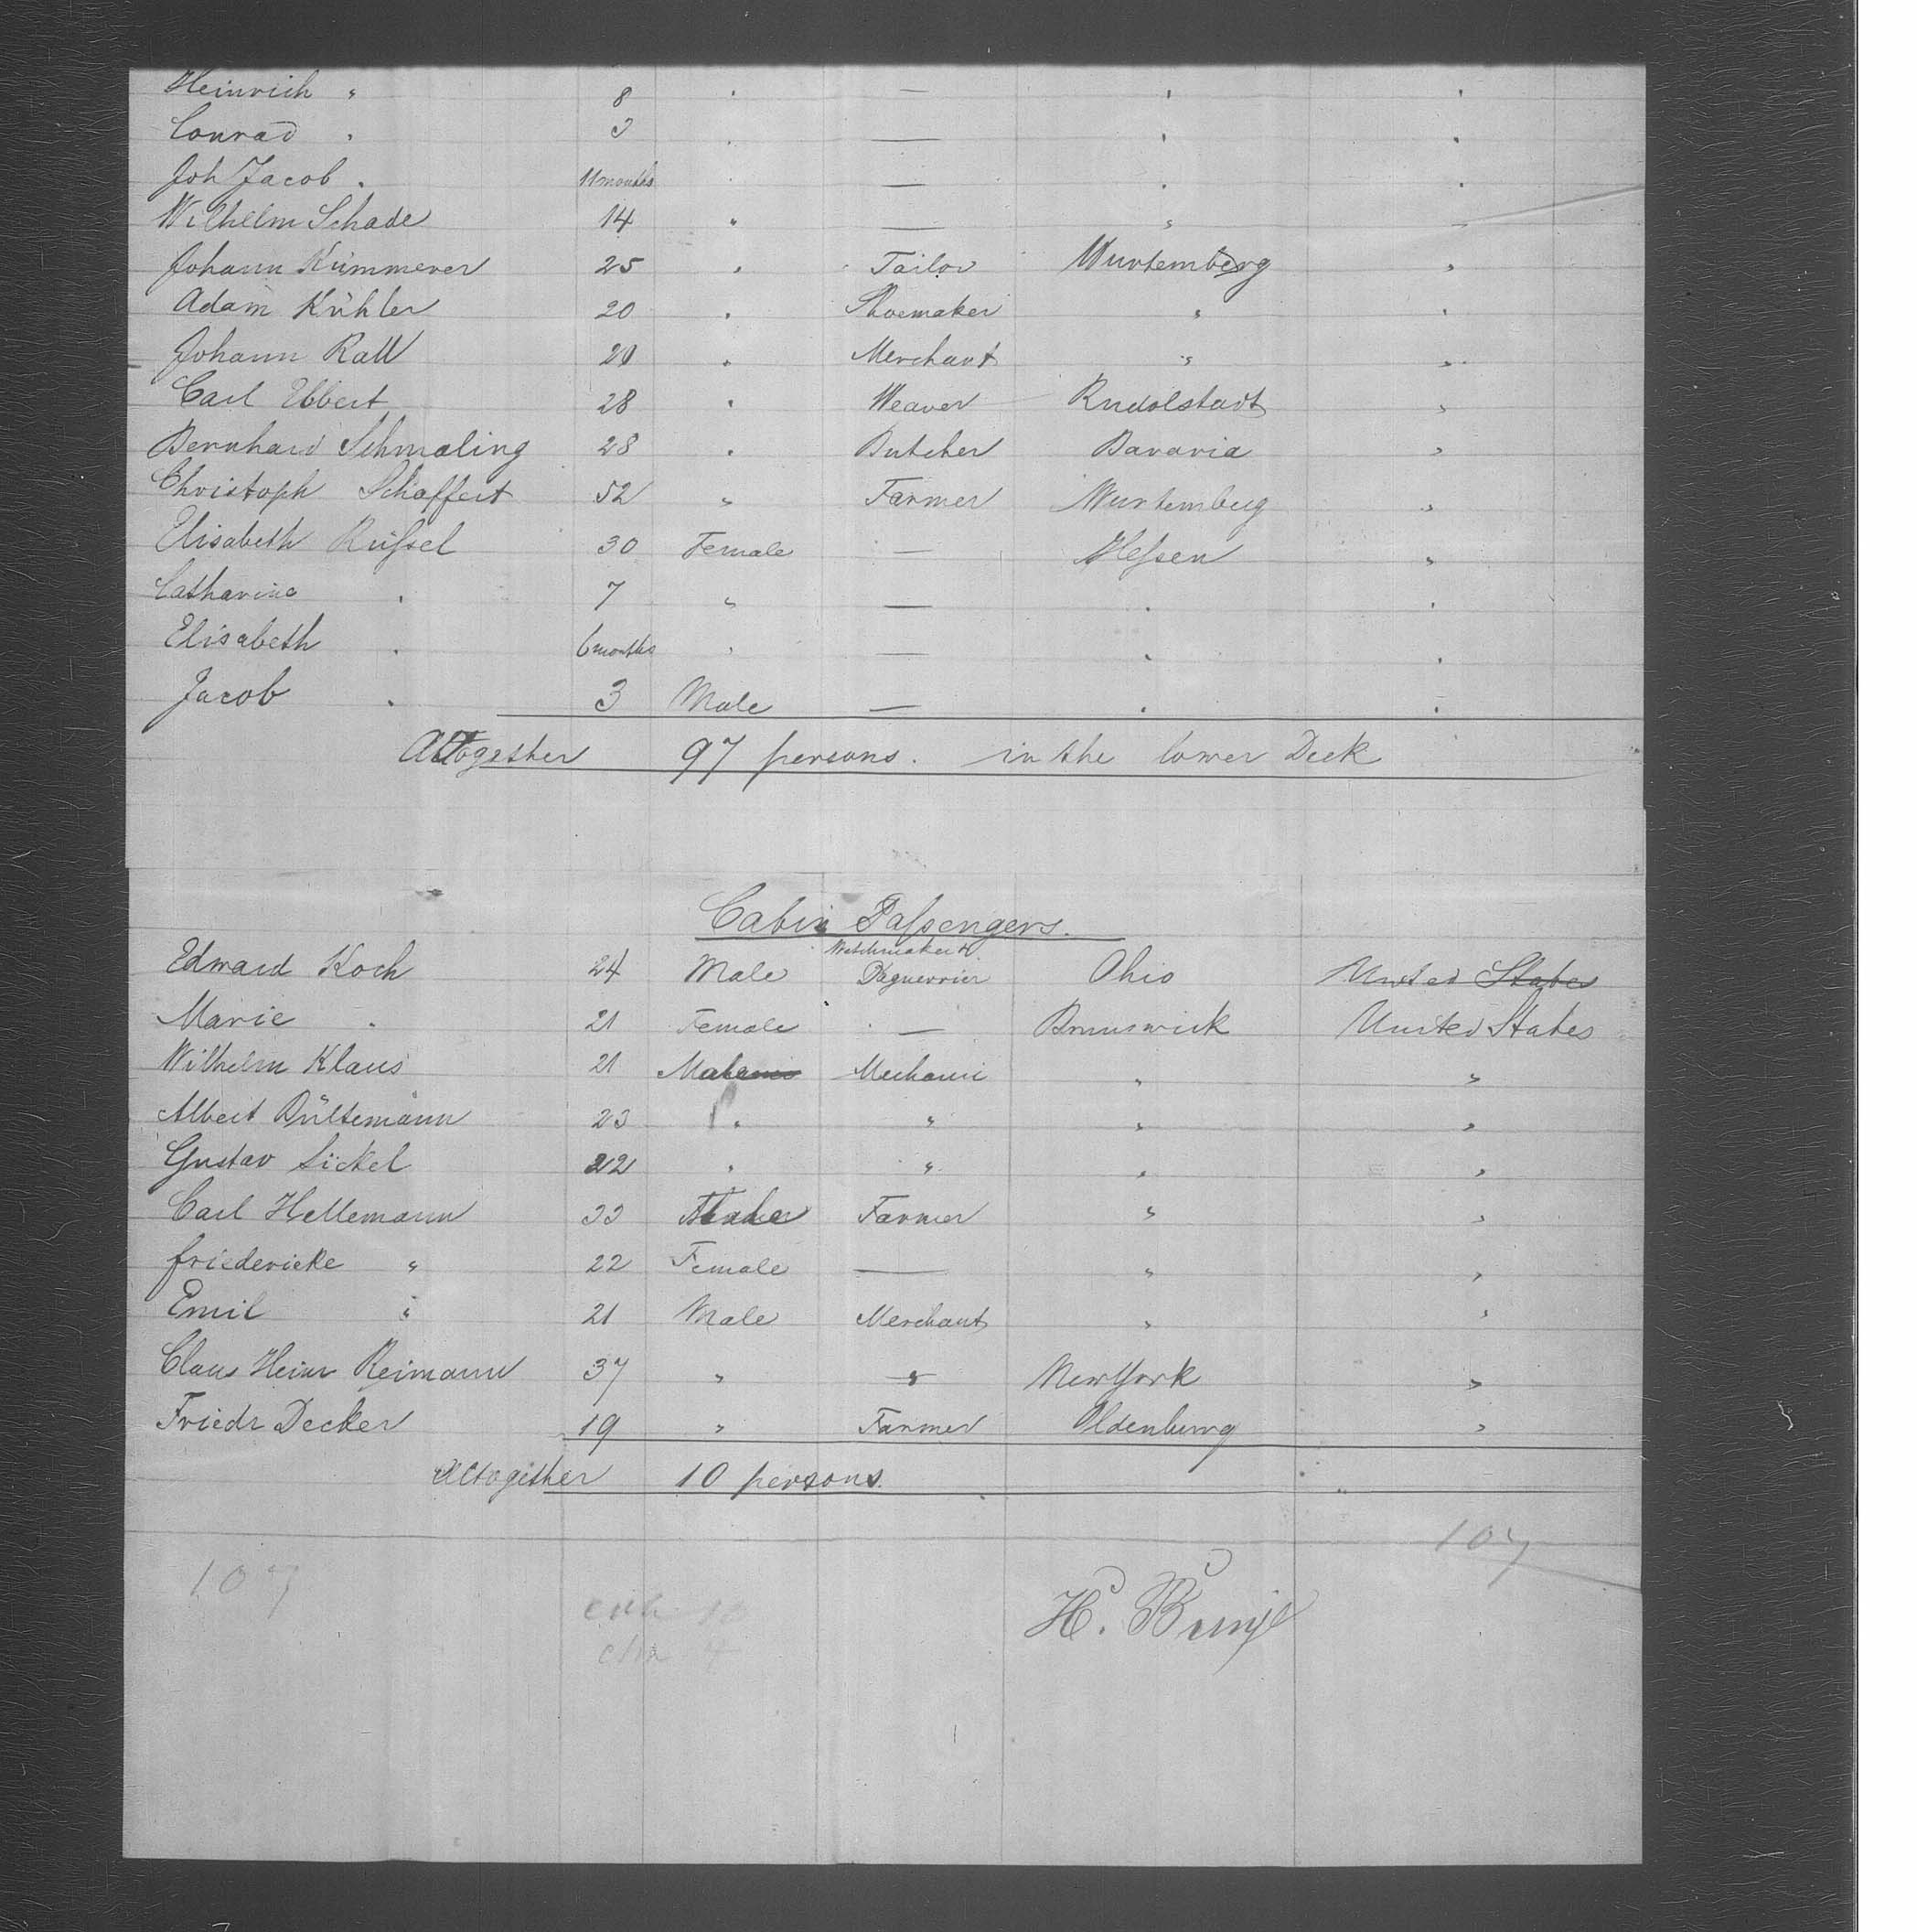 Heinrich " 8 " — " "
Conrad " 3 " — " "
Joh Jacob " 11 months " — " "
Wilhelm Schade 14 " — " "
Johann Kümmerer 25 " Tailor Wurtemberg "
Adam Kühler 20 " Shoemaker " "
Johann Rall 20 " Merchant " "
Carl Ebbert 28 " Weaver Rudolstadt "
Bernhard Schmaling 28 " Butcher Bavaria "
Christoph Schaffert 52 " Farmer Wurtemberg "
Elisabeth Rüssel 30 Female — Hessen "
Catharine " 7 " — " "
Elisabeth " 6 months " — " "
Jacob " 3 Male — " "
Altogether 97 persons. in the lower Deck
Cabin Passengers.
Watchmaker &
Edward Koch 24 Male Daguerrier Ohio United States
Marie " 21 Female — Brunswick United States
Wilhelm Klaus 21 Male Mechanic " "
Albert Bültemann 23 " " " "
Gustav Sickel 22 " " " "
Carl Hellemann 33 Farmer " "
Friedericke " 22 Female — " "
Emil " 21 Male Merchant " "
Claus Heinr Reimann 37 " " New York "
Friedr Decker 19 " Farmer Oldenburg "
Altogether 10 persons.
107
107
H. Bunje